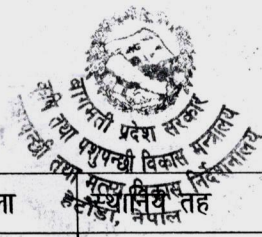 बागमती प्रदेश सरकार
कृषि तथा पशुपन्छी विकास मन्त्रालय
पशुपन्छी तथा मत्स्य विकास निर्देशनालय
हेटौंडा, नेपाल
ला
स्थानिय तह